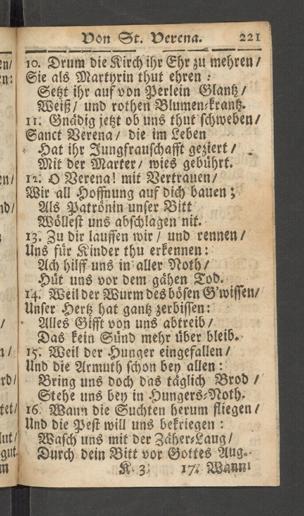 Von St. Verena. 221
10. Drum die Kirch ihr Ehr zu mehren /
Sie als Martyrin thut ehren :
Setzt ihr auf von Perlein Glantz /
Weiß / und rothen Blumen-krantz.
11. Gnädig jetzt ob uns thut schweben /
Sanct Verena / die im Leben
Hat ihr Jungfrauschafft geziert /
Mit der Marter / wies gebührt.
12. O Verena! mit Vertrauen /
Wir all Hoffnung auf dich bauen ;
Als Patrönin unser Bitt
Wöllest uns abschlagen nit.
13. Zu dir lauffen wir / und rennen /
Uns für Kinder thu erkennen :
Ach hilff uns in aller Noth /
Hüt uns vor dem gähen Tod.
14. Weil der Wurm des bösen G'wissen /
Unser Hertz hat gantz zerbissen :
Alles Gifft von uns abtreib /
Das kein Sünd mehr über bleib.
15. Weil der Hunger eingefallen /
Und die Armuth schon bey allen :
Bring uns doch das täglich Brod /
Stehe uns bey in Hungers-Noth.
16. Wann die Suchten herum fliegen /
Und die Pest will uns bekriegen :
Wasch uns mit der Zäher-Laug /
Durch dein Bitt vor Gottes Aug.
K 3 17. Wann